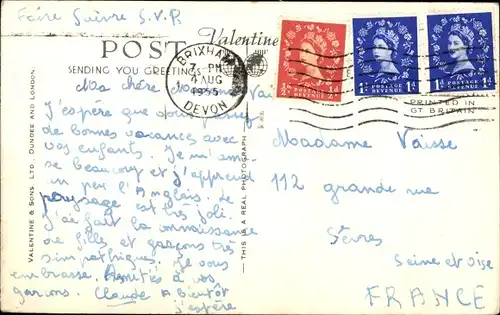 Faire Suivre S.V.P.
Valentine
POST
SENDING YOU GREETINGS
BRIXHAM
7- PM
AUG
1955
DEVON
½D POSTAGE REVENUE ½D
1D POSTAGE REVENUE 1D
1D POSTAGE REVENUE 1D
PRINTED IN
GT BRITAIN
VALENTINE & SONS. LTD. DUNDEE AND LONDON.
THIS IS A REAL PHOTOGRAPH
Ma chère
J'espère que
de bonnes vacances avec
vos enfants. Je m'amuse
beaucoup et j'apprend
un peu l'Anglais. Le
paysage est très joli.
J'ai fait la connaissance
de filles et garçons très
sympathiques. Je vous
embrasse. Amitiés à vos
garçons. Claude A bientôt
j'espère
Madame Vaisse
112 grande rue
Sèvres
Seine et Oise
FRANCE